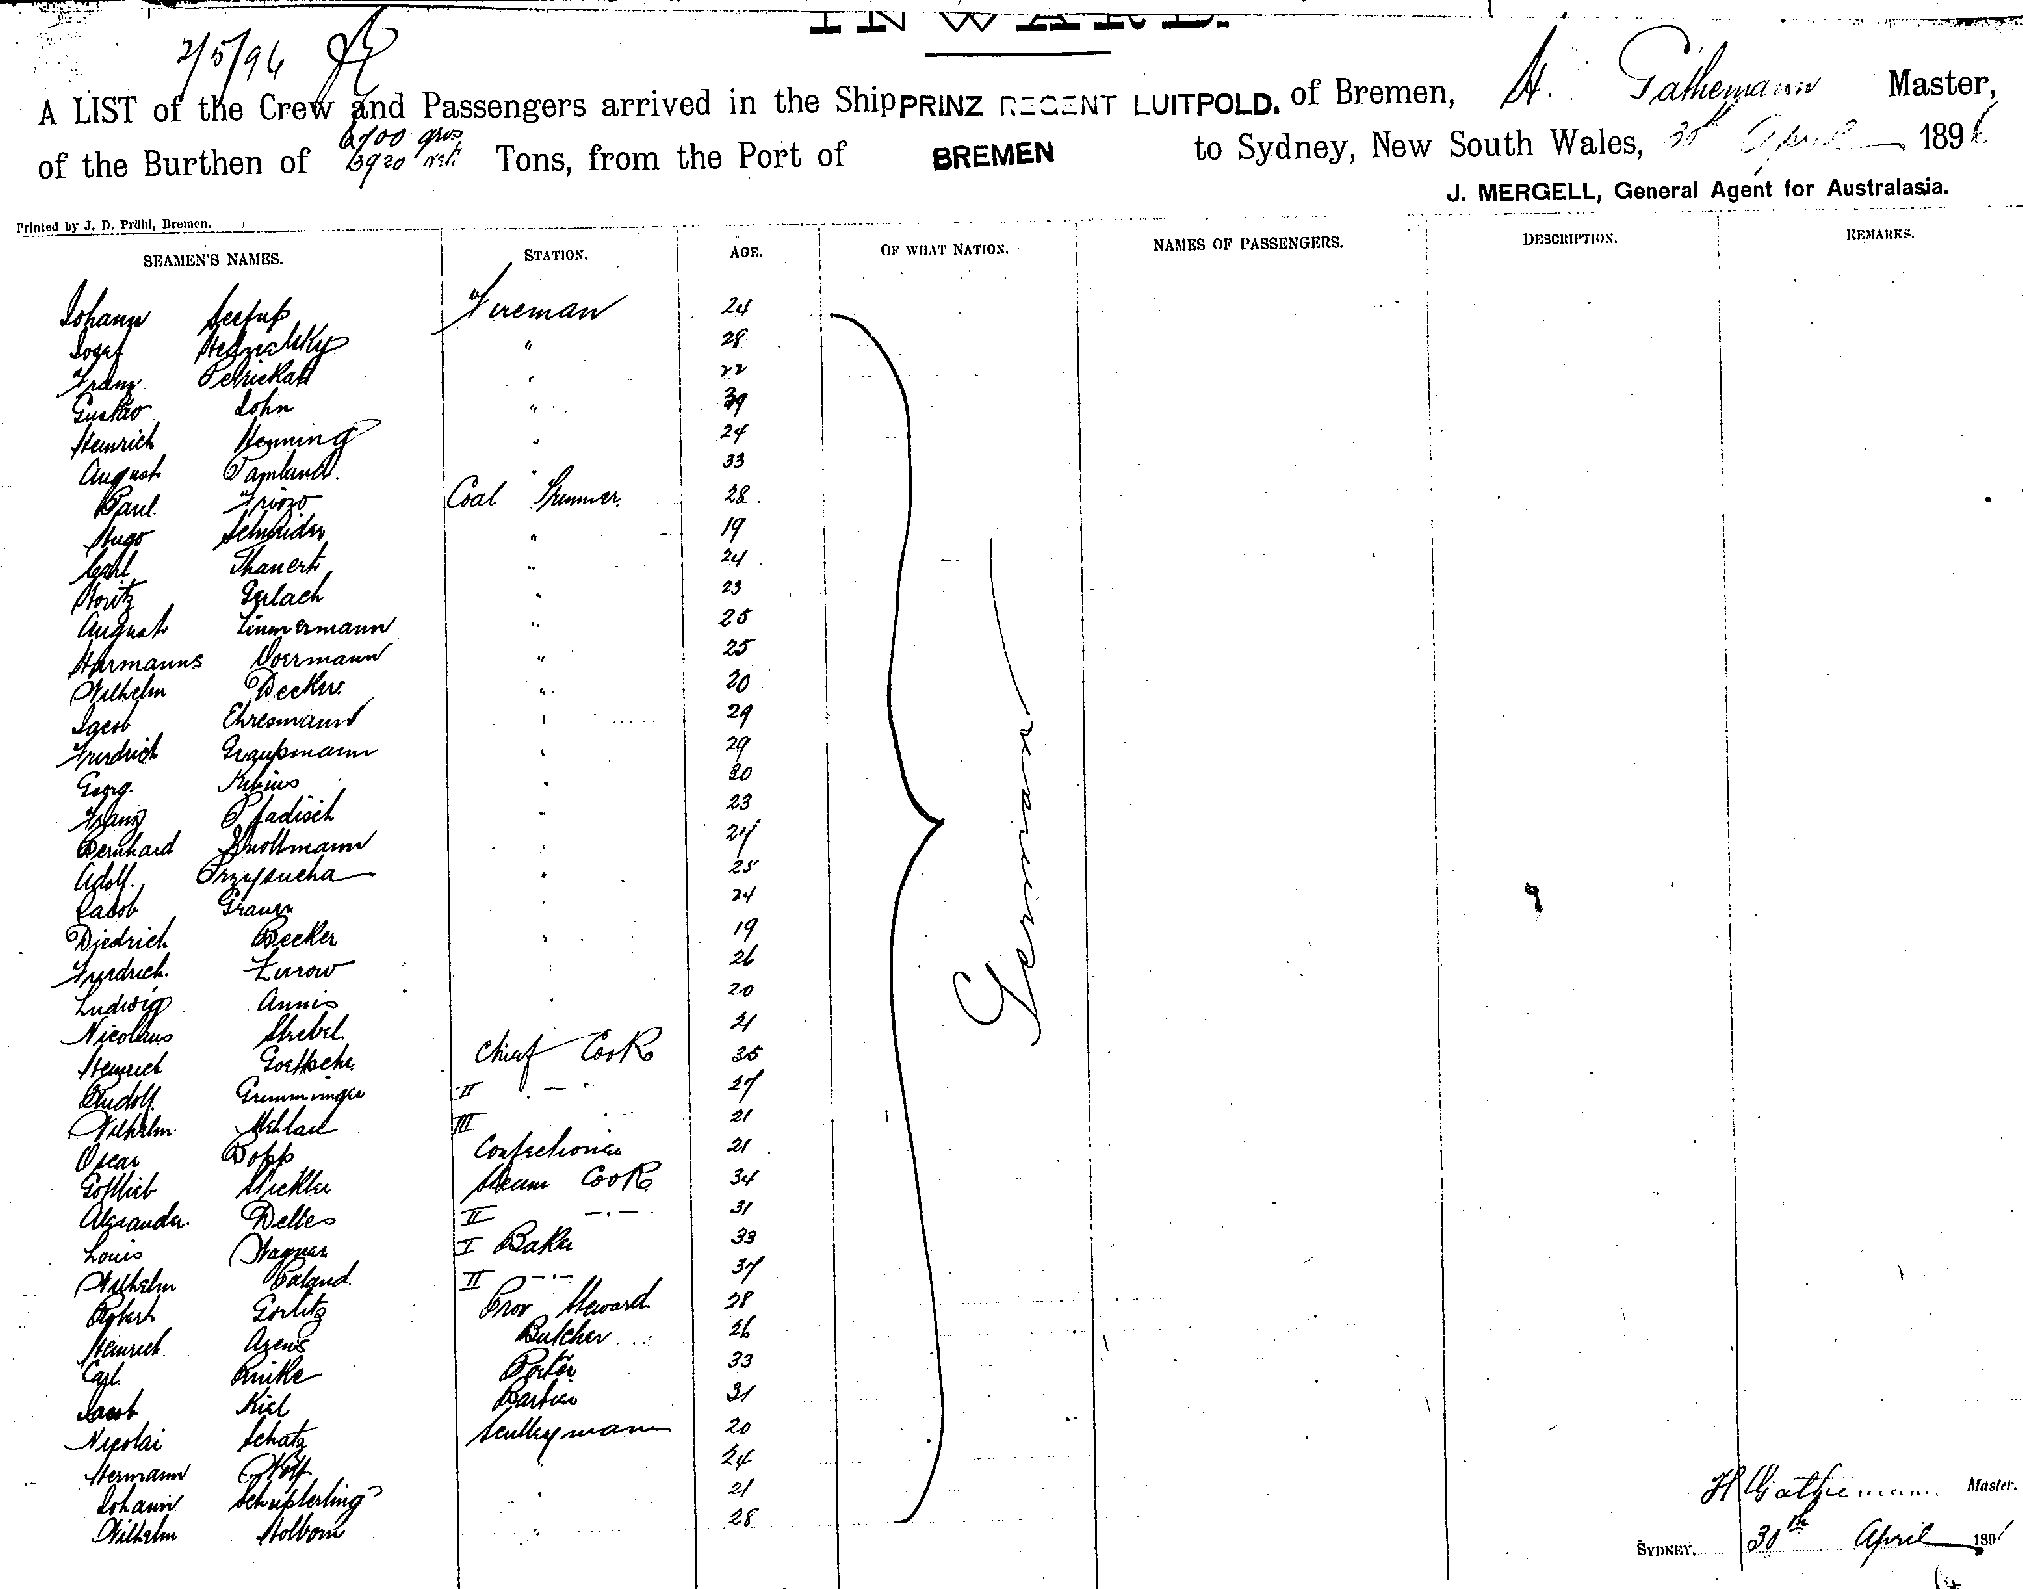 INWARD.
2/5/96
A LIST of the Crew and Passengers arrived in the Ship PRINZ REGENT LUITPOLD. of Bremen, H. Gathemann Master,
of the Burthen of 6700 gros 3920 net Tons, from the Port of BREMEN to Sydney, New South Wales, 30th April 1896
J. MERGELL, General Agent for Australasia.
Printed by J. D. Prühl, Bremen.
SEAMEN'S NAMES. STATION. AGE. OF WHAT NATION. NAMES OF PASSENGERS. DESCRIPTION. REMARKS.
Johann Fireman 24
Josef " 28
Franz " 22
Gustav John " 39
Heinrich Henning " 24
August " 33
Paul Coal Trimmer 28
Hugo Schneider " 19
Carl Thanert " 24
Moritz Gerlach " 23
August Zimmermann " 25
Harmanns Voermann " 25
Wilhelm Becker " 20
Jacob Ehresmann " 29
Friedrich Graupmann " 29
Georg " 20
Franz Pfadisch " 23
Bernhard " 24
Adolf Przysucha " 25
Jacob Grauer 24
Diedrich Becker " 19
Friedrich Zurow 26
Ludwig Annis 20
Nicolaus Strebel 21
Heinrich Goettsche Chief Cook 35
Rudolf Gremminger II -"- 27
Wilhelm Mehlau III 21
Oscar Bopp Confectioner 21
Gottlieb Steam Cook 34
Alexander Delles II -"- 31
Louis Wagner I Baker 33
Wilhelm Roland II -"- 37
Robert Görlitz Prov Steward 28
Heinrich Arens Butcher 26
Carl Reinke Porter 33
Jacob Kiel Barbier 31
Nicolai Schatz Sculleryman 20
Hermann Wolf " 24
Johann Schüsterling " 21
Wilhelm Holborn " 28
German
H Gathemann Master.
SYDNEY. 30th April 1896